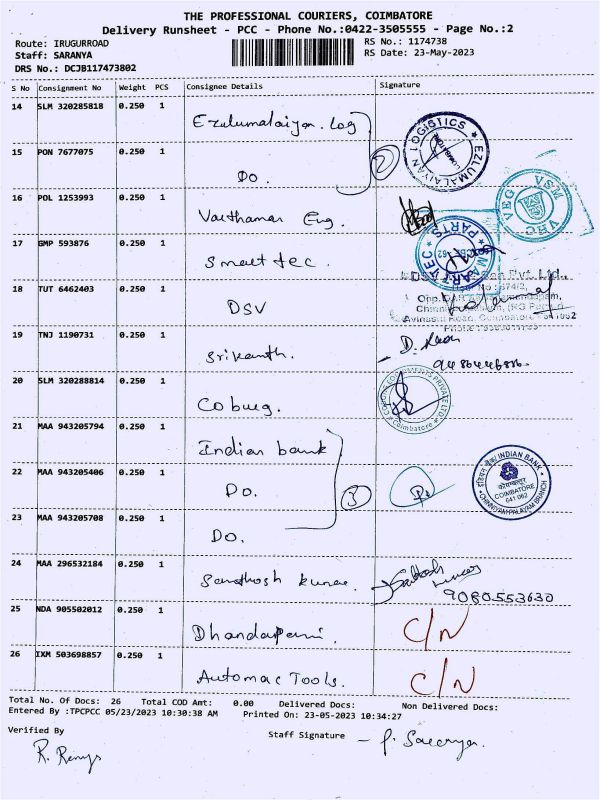 THE PROFESSIONAL COURIERS, COIMBATORE
Delivery Runsheet - PCC - Phone No.:0422-3505555 - Page No.:2
Route: IRUGURROAD
Staff: SARANYA
DRS No.: DCJB117473802
RS No.: 1174738
RS Date: 23-May-2023
S No Consignment No Weight PCS Consignee Details Signature
14 SLM 320285818 0.250 1 Ezulumalaiyan. Log
EZLUMALAIYAN LOGISTICS COIMBATORE
2
15 PON 7677075 0.250 1 Do.
16 POL 1253993 0.250 1 Varthaman Eng.
VEG VSM VRC
17 GMP 593876 0.250 1 Smart tec.
PARTS
18 TUT 6462403 0.250 1 DSV
Pvt. Ltd.,
19 TNJ 1190731 0.250 1 Srikanth.
20 SLM 320288814 0.250 1 Coburg.
Coimbatore
21 MAA 943205794 0.250 1 Indian bank
22 MAA 943205406 0.250 1 Do.
3
INDIAN BANK
इंडियन बैंक
कोयम्बतूर
COIMBATORE
641 062
CHINNIYAMPALAYAM BRANCH
23 MAA 943205708 0.250 1 Do.
24 MAA 296532184 0.250 1 Santhosh kumar
9080553630
25 NDA 905502012 0.250 1 Dhandapani. C/N
26 IXM 503698857 0.250 1 Automac Tools. C/N
Total No. Of Docs: 26 Total COD Amt: 0.00 Delivered Docs: Non Delivered Docs:
Entered By :TPCPCC 05/23/2023 10:30:38 AM Printed On: 23-05-2023 10:34:27
Verified By
Staff Signature